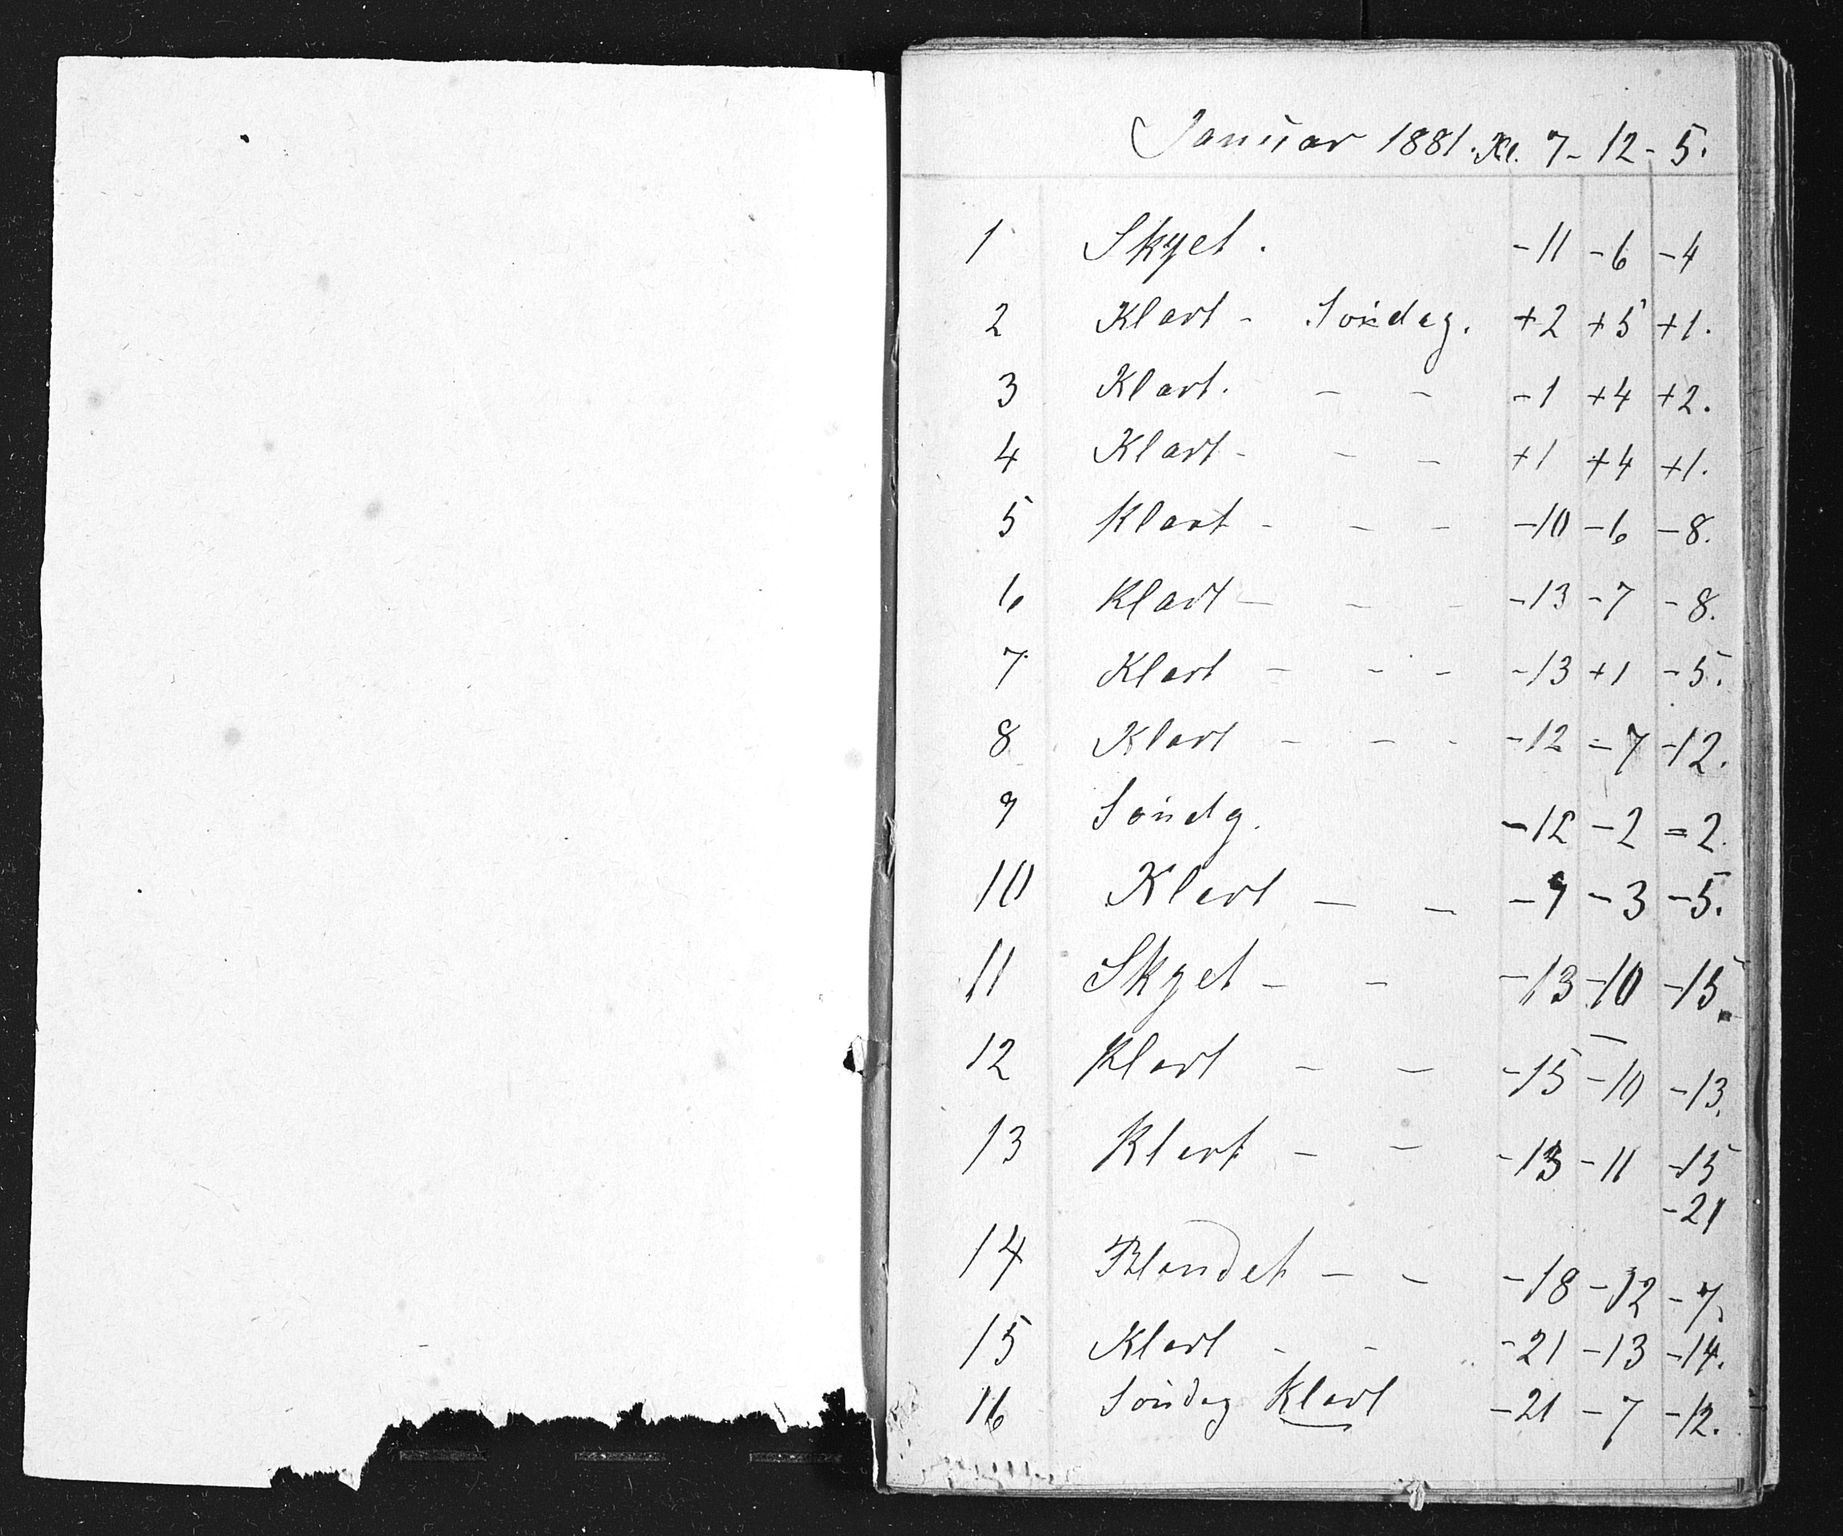 Januar 1881. Kl. 7 - 12 - 5.
1 Skyet. -11 -6 -4
2 Klart - Søndag. +2 +5 +1.
3 Klart. - - -1 +4 +2.
4 Klart - - - +1 +4 +1.
5 Klart - - - -10 -6 -8.
6 Klart - - - -13 -7 -8.
7 Klart - - - -13 +1 -5.
8 Klart - - - -12 -7 -12.
9 Søndg. -12 -2 =2.
10 Klart - - -9 -3 -5.
11 Skyet - - -13 -10 -15.
12 Klart - - -15 -10 -13.
13 Klart - - -13 -11 -15
-21
14 Blandet - - -18 -12 -7.
15 Klart - - -21 -13 -14.
16 Søndag Klart -21 -7 -12.